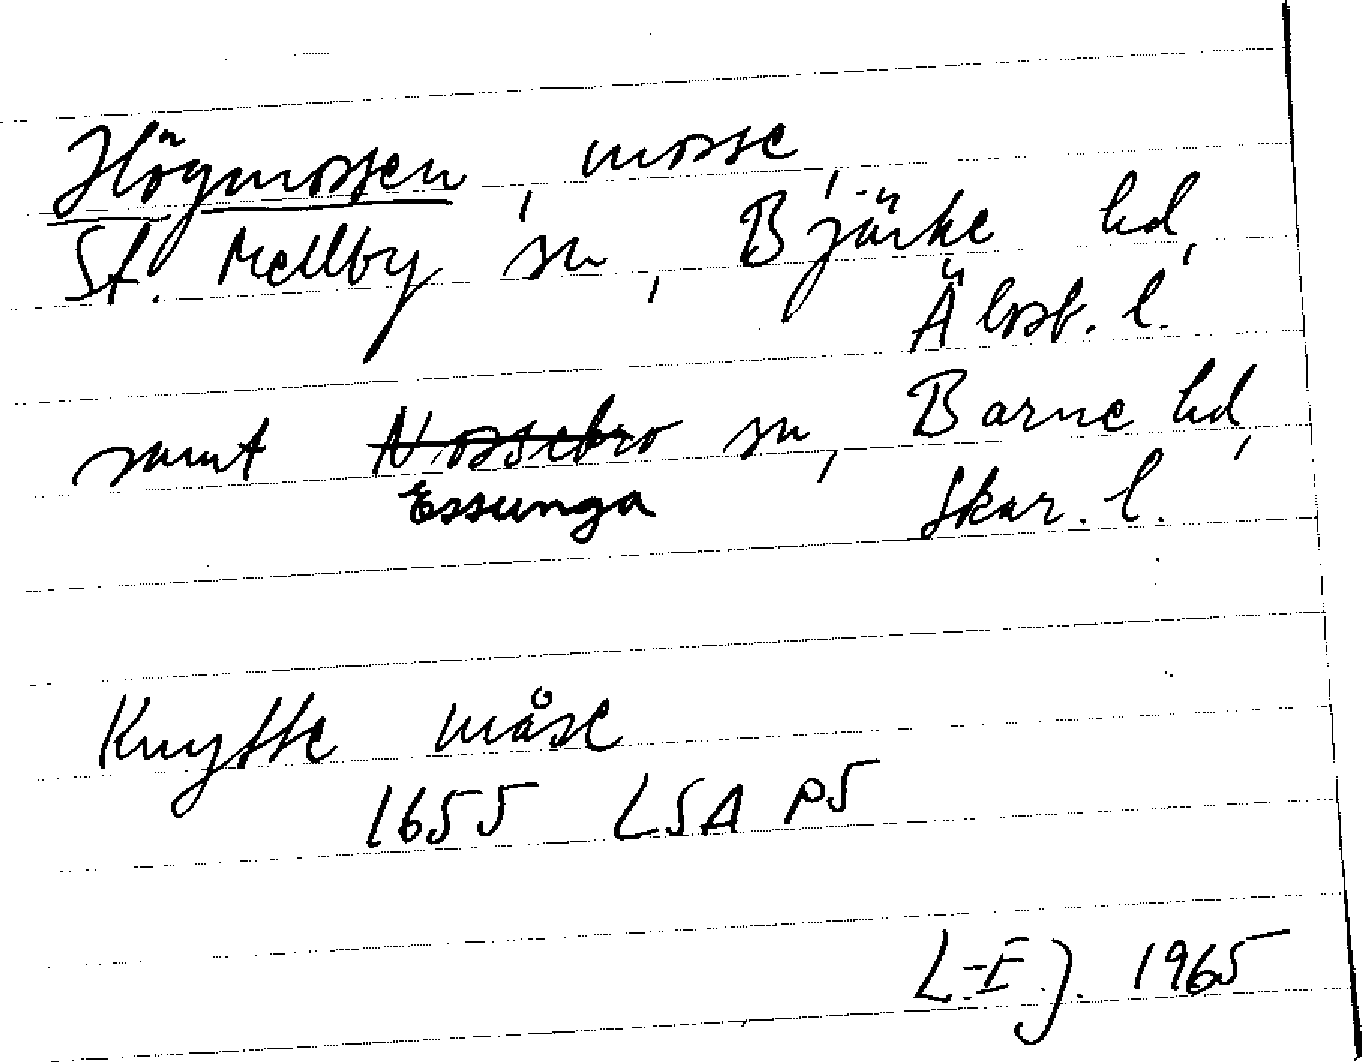 Högmossen, mosse,
St. Mellby sn, Bjärke hd,
Älvsb. l.
samt Nossebro sn, Barne hd,
Essunga Skar. l.
Knytte måse
1655 LSA P5
L-E J. 1965